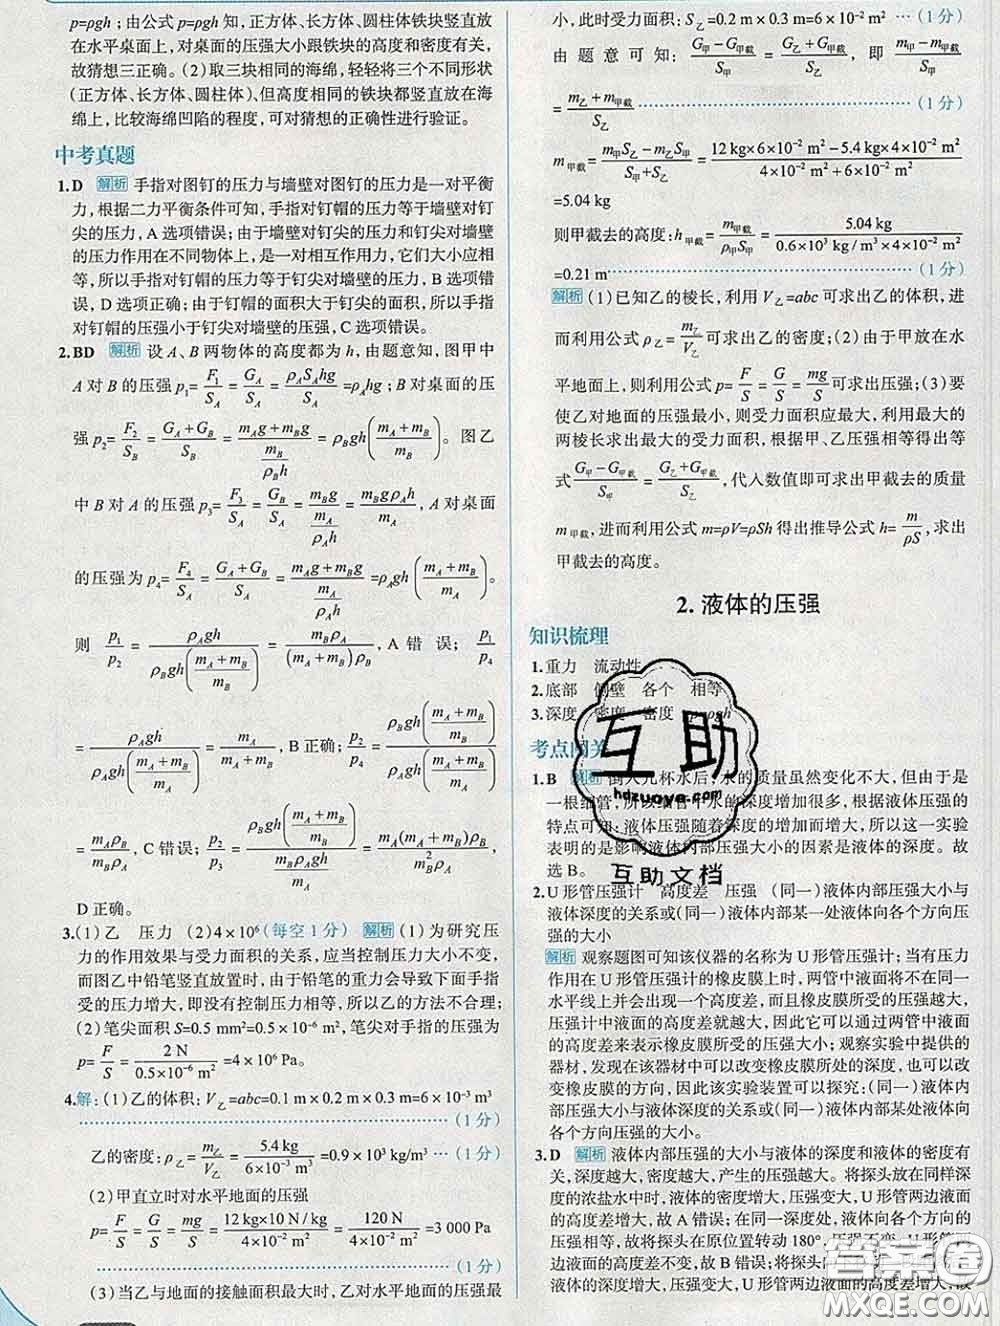 p=ρgh；由公式 p=ρgh 知，正方体、长方体、圆柱体铁块竖直放
在水平桌面上，对桌面的压强大小跟铁块的高度和密度有关，
故猜想三正确。（2）取三块相同的海绵，轻轻将三个不同形状
（正方体、长方体、圆柱体）、但高度相同的铁块都竖直放在海
绵上，比较海绵凹陷的程度，可对猜想的正确性进行验证。
中考真题
1.D 解析 手指对图钉的压力与墙壁对图钉的压力是一对平衡
力，根据二力平衡条件可知，手指对钉帽的压力等于墙壁对钉
尖的压力，A 选项错误；由于墙壁对钉尖的压力和钉尖对墙壁
的压力作用在不同物体上，是一对相互作用力，它们大小应相
等，所以手指对钉帽的压力等于钉尖对墙壁的压力，B 选项错
误，D 选项正确；由于钉帽的面积大于钉尖的面积，所以手指
对钉帽的压强小于钉尖对墙壁的压强，C 选项错误。
2.BD 解析 设 A、B 两物体的高度都为 h，由题意知，图甲中
A 对 B 的压强 p₁=F₁/S_A=G_A/S_A=ρ_A S_A hg/S_A=ρ_A hg；B 对桌面的压
强 p₂=F₂/S_B=(G_A+G_B)/S_B=(m_A g+m_B g)/(m_B/(ρ_B h))=ρ_B gh((m_A+m_B)/m_B)。图乙
中 B 对 A 的压强 p₃=F₃/S_A=G_B/S_A=m_B g/(m_A/(ρ_A h))=m_B gρ_A h/m_A，A 对桌面
的压强为 p₄=F₄/S_A=(G_A+G_B)/S_A=(m_A g+m_B g)/(m_A/(ρ_A h))=ρ_A gh((m_A+m_B)/m_A)。
则 p₁/p₂=ρ_A gh/(ρ_B gh((m_A+m_B)/m_B))=m_B ρ_A/((m_A+m_B)ρ_B)，A 错误；p₁/p₄
=ρ_A gh/(ρ_A gh((m_A+m_B)/m_A))=m_A/(m_A+m_B)，B 正确；p₂/p₄=ρ_B gh((m_A+m_B)/m_B)/(ρ_A gh((m_A+m_B)/m_A))
=m_A ρ_B/(m_B ρ_A)，C 错误；p₂/p₃=ρ_B gh((m_A+m_B)/m_B)/(m_B gρ_A h/m_A)=m_A(m_A+m_B)ρ_B/(m_B²ρ_A)，
D 正确。
3.（1）乙 压力 （2）4×10⁶（每空 1 分） 解析 （1）为研究压
力的作用效果与受力面积的关系，应当控制压力大小不变，
而图乙中铅笔竖直放置时，由于铅笔的重力会导致下面手指
受的压力增大，即没有控制压力相等，所以乙的方法不合理；
（2）笔尖面积 S=0.5 mm²=0.5×10⁻⁶ m²，笔尖对手指的压强为
p=F/S=2 N/(0.5×10⁻⁶ m²)=4×10⁶ Pa。
4.解：（1）乙的体积：V乙=abc=0.1 m×0.2 m×0.3 m=6×10⁻³ m³
（1 分）
乙的密度：ρ乙=m乙/V乙=5.4 kg/(6×10⁻³ m³)=0.9×10³ kg/m³ …（1 分）
（2）甲直立时对水平地面的压强
p=F/S=G/S=mg/S=12 kg×10 N/kg/(4×10⁻² m²)=120 N/(4×10⁻² m²)=3 000 Pa
（1 分）
（3）当乙与地面的接触面积最大时，乙对水平地面的压强最
小，此时受力面积：S乙=0.2 m×0.3 m=6×10⁻² m² …（1 分）
由题意可知：(G甲-G甲截)/S甲=(G乙+G甲截)/S乙，即 (m甲-m甲截)/S甲
=(m乙+m甲截)/S乙 ……（1 分）
m甲截=(m甲S乙-m乙S甲)/(S乙+S甲)=(12 kg×6×10⁻² m²-5.4 kg×4×10⁻² m²)/(4×10⁻² m²+6×10⁻² m²)
=5.04 kg
则甲截去的高度：h甲截=m甲截/(ρ甲S甲)=5.04 kg/(0.6×10³ kg/m³×4×10⁻² m²)
=0.21 m ……（1 分）
解析 （1）已知乙的棱长，利用 V乙=abc 可求出乙的体积，进
而利用公式 ρ乙=m乙/V乙可求出乙的密度；（2）由于甲放在水
平地面上，则利用公式 p=F/S=G/S=mg/S可求出压强；（3）要
使乙对地面的压强最小，则受力面积应最大，利用最大的
两棱长求出最大的受力面积，根据甲、乙压强相等得出等
式(G甲-G甲截)/S甲=(G乙+G甲截)/S乙，代入数值即可求出甲截去的质量
m甲截，进而利用公式 m=ρV=ρSh 得出推导公式 h=m/(ρS)，求出
甲截去的高度。
2. 液体的压强
知识梳理
1.重力 流动性
2.底部 侧壁 各个 相等
3.深度 密度 密度 p=ρgh
考点闯关
1.B 解析 倒入几杯水后，水的质量虽然变化不大，但由于是
一根细管，所以细管中水的深度增加很多，根据液体压强的
特点可知：液体压强随着深度的增加而增大，所以这一实验
表明的是影响液体内部压强大小的因素是液体的深度。故
选 B。
2.U 形管压强计 高度差 压强 （同一）液体内部压强大小与
液体深度的关系或（同一）液体内部某一处液体向各个方向压
强的大小
解析 观察题图可知该仪器的名称为 U 形管压强计；当有压力
作用在 U 形管压强计的橡皮膜上时，两管中液面将不在同一
水平线上并会出现一个高度差，而且橡皮膜所受的压强越大，
压强计中液面的高度差就越大，因此它可以通过两管中液面
的高度差来表示橡皮膜所受的压强大小；观察实验中提供的
器材，发现在该器材中可以改变橡皮膜所处的深度，也可以改
变橡皮膜的方向，因此该实验装置可以探究：（同一）液体内
部压强大小与液体深度的关系或（同一）液体内部液体向各
个方向压强的大小。
3.D 解析 液体内部压强的大小与液体的深度和液体的密度有
关，深度越大，密度越大，产生的压强越大。将探头放在同样深
度的浓盐水中时，液体的密度增大，压强变大，U 形管两边液面
的高度差增大，故 A 错误；在同一深度处，液体向各个方向的
压强相等，故将探头在原位置转动 180°，压强不变，U 形管两
边液面的高度差不变，故 B 错误；将探头
液体的深度减小，压强变小，U 形管两边液面的高度差
互助
hdzuoye.com
互助文档
答案圈
MXQE.COM